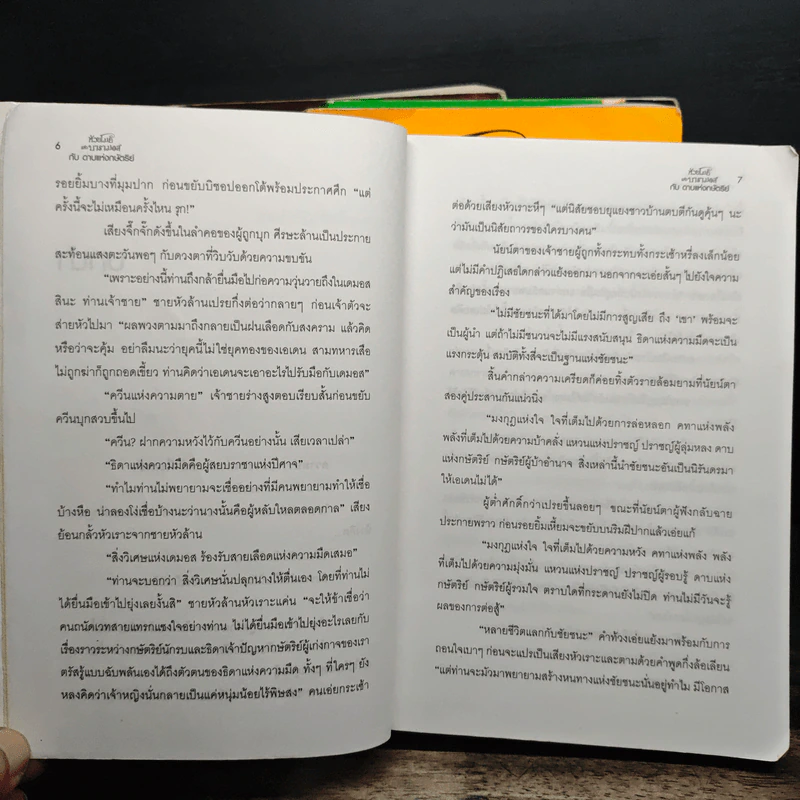 6
หัวขโมย
แห่งบารามอส
กับ ดาบแห่งกษัตริย์
รอยยิ้มบางที่มุมปาก ก่อนขยับบิชอปออกโต้พร้อมประกาศศึก “แต่
ครั้งนี้จะไม่เหมือนครั้งไหน รุก!”
เสียงจึ๊กจั๊กดังขึ้นในลำคอของผู้ถูกบุก ศีรษะล้านเป็นประกาย
สะท้อนแสงตะวันพอๆ กับดวงตาที่วิบวับด้วยความขบขัน
“เพราะอย่างนี้ท่านถึงกล้ายื่นมือไปก่อความวุ่นวายถึงในเดมอส
สินะ ท่านเจ้าชาย” ชายหัวล้านเปรยกึ่งต่อว่ากลายๆ ก่อนเจ้าตัวจะ
ส่ายหัวไปมา “ผลพวงตามมาถึงกลายเป็นฝนเลือดกับสงคราม แล้วคิด
หรือว่าจะคุ้ม อย่าลืมนะว่ายุคนี้ไม่ใช่ยุคทองของเอเดน สามทหารเสือ
ไม่ถูกฆ่าก็ถูกถอดเขี้ยว ท่านคิดว่าเอเดนจะเอาอะไรไปรับมือกับเดมอส”
“ควีนแห่งความตาย” เจ้าชายร่างสูงตอบเรียบสั้นก่อนขยับ
ควีนบุกสวบขึ้นไป
“ควีน? ฝากความหวังไว้กับควีนอย่างนั้น เสียเวลาเปล่า”
“ธิดาแห่งความมืดคือผู้สยบราชาแห่งปีศาจ”
“ทำไมท่านไม่พยายามจะเชื่ออย่างที่มีคนพยายามทำให้เชื่อ
บ้างหือ น่าลองโง่เชื่อบ้างนะว่านางนั้นคือผู้หลับใหลตลอดกาล” เสียง
ย้อนกลั้วหัวเราะจากชายหัวล้าน
“สิ่งวิเศษแห่งเดมอส ร้องรับสายเลือดแห่งความมืดเสมอ”
“ท่านจะบอกว่า สิ่งวิเศษนั่นปลุกนางให้ตื่นเอง โดยที่ท่านไม่
ได้ยื่นมือเข้าไปยุ่งเลยงั้นสิ” ชายหัวล้านหัวเราะแค่น “จะให้ข้าเชื่อว่า
คนถนัดเวทสายแทรกแซงใจอย่างท่าน ไม่ได้ยื่นมือเข้าไปยุ่งอะไรเลยกับ
เรื่องราวระหว่างกษัตริย์นักรบและธิดาเจ้าปัญหากษัตริย์ผู้เก่งกาจของเรา
ตรัสรู้แบบฉับพลันเองได้ถึงตัวตนของธิดาแห่งความมืด ทั้งๆ ที่ใครๆ ยัง
หลงคิดว่าเจ้าหญิงนั่นกลายเป็นแค่หนุ่มน้อยไร้พิษสง” คนเอ่ยกระเซ้า
หัวขโมย
แห่งบารามอส
กับ ดาบแห่งกษัตริย์
7
ต่อด้วยเสียงหัวเราะหึๆ “แต่นิสัยชอบยุแยงชาวบ้านตบตีกันดูคุ้นๆ นะ
ว่ามันเป็นนิสัยถาวรของใครบางคน”
นัยน์ตาของเจ้าชายผู้ถูกทั้งกระทบทั้งกระเซ้าหรี่ลงเล็กน้อย
แต่ไม่มีคำปฏิเสธใดกล่าวแย้งออกมา นอกจากจะเอ่ยสั้นๆ ไปยังใจความ
สำคัญของเรื่อง
“ไม่มีชัยชนะที่ได้มาโดยไม่มีการสูญเสีย ถึง ‘เขา’ พร้อมจะ
เป็นผู้นำ แต่ถ้าไม่มีชนวนจะไม่มีแรงสนับสนุน ธิดาแห่งความมืดจะเป็น
แรงกระตุ้น สมบัติทั้งสี่จะเป็นฐานแห่งชัยชนะ”
สิ้นคำกล่าวความเครียดก็ค่อยทิ้งตัวรายล้อมยามที่นัยน์ตา
สองคู่ประสานกันแน่วนิ่ง
“มงกุฎแห่งใจ ใจที่เต็มไปด้วยการล่อหลอก คทาแห่งพลัง
พลังที่เต็มไปด้วยความบ้าคลั่ง แหวนแห่งปราชญ์ ปราชญ์ผู้ลุ่มหลง ดาบ
แห่งกษัตริย์ กษัตริย์ผู้บ้าอำนาจ สิ่งเหล่านี้นำชัยชนะอันเป็นนิรันดรมา
ให้เอเดนไม่ได้”
ผู้ต่ำศักดิ์กว่าเปรยขึ้นลอยๆ ขณะที่นัยน์ตาผู้ฟังกลับฉาย
ประกายพราว ก่อนรอยยิ้มเหี้ยมจะขยับบนริมฝีปากแล้วเอ่ยแก้
“มงกุฎแห่งใจ ใจที่เต็มไปด้วยความหวัง คทาแห่งพลัง พลัง
ที่เต็มไปด้วยความมุ่งมั่น แหวนแห่งปราชญ์ ปราชญ์ผู้รอบรู้ ดาบแห่ง
กษัตริย์ กษัตริย์ผู้รวมใจ ตราบใดที่กระดานยังไม่ปิด ท่านไม่มีวันจะรู้
ผลของการต่อสู้”
“หลายชีวิตแลกกับชัยชนะ” คำท้วงเอ่ยแย้งมาพร้อมกับการ
ถอนใจเบาๆ ก่อนจะแปรเป็นเสียงหัวเราะและตามด้วยคำพูดกึ่งล้อเลียน
“แต่ท่านจะมัวมาพยายามสร้างหนทางแห่งชัยชนะนั่นอยู่ทำไม มีโอกาส